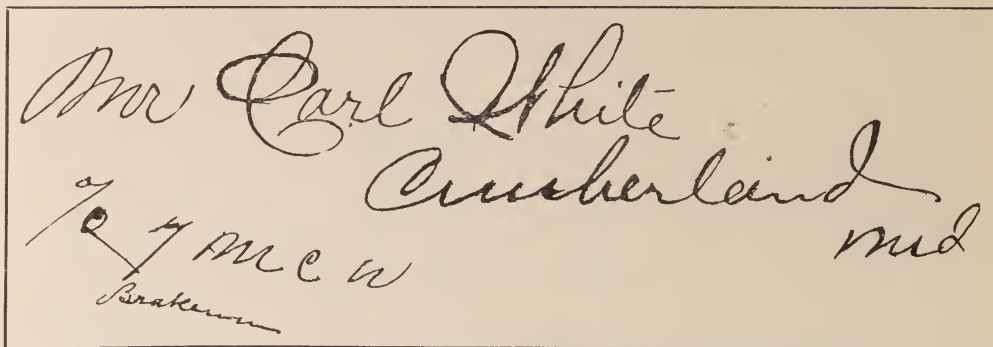 Mr Carl White
Cumberland
Md
% Y M C A
Brakeman